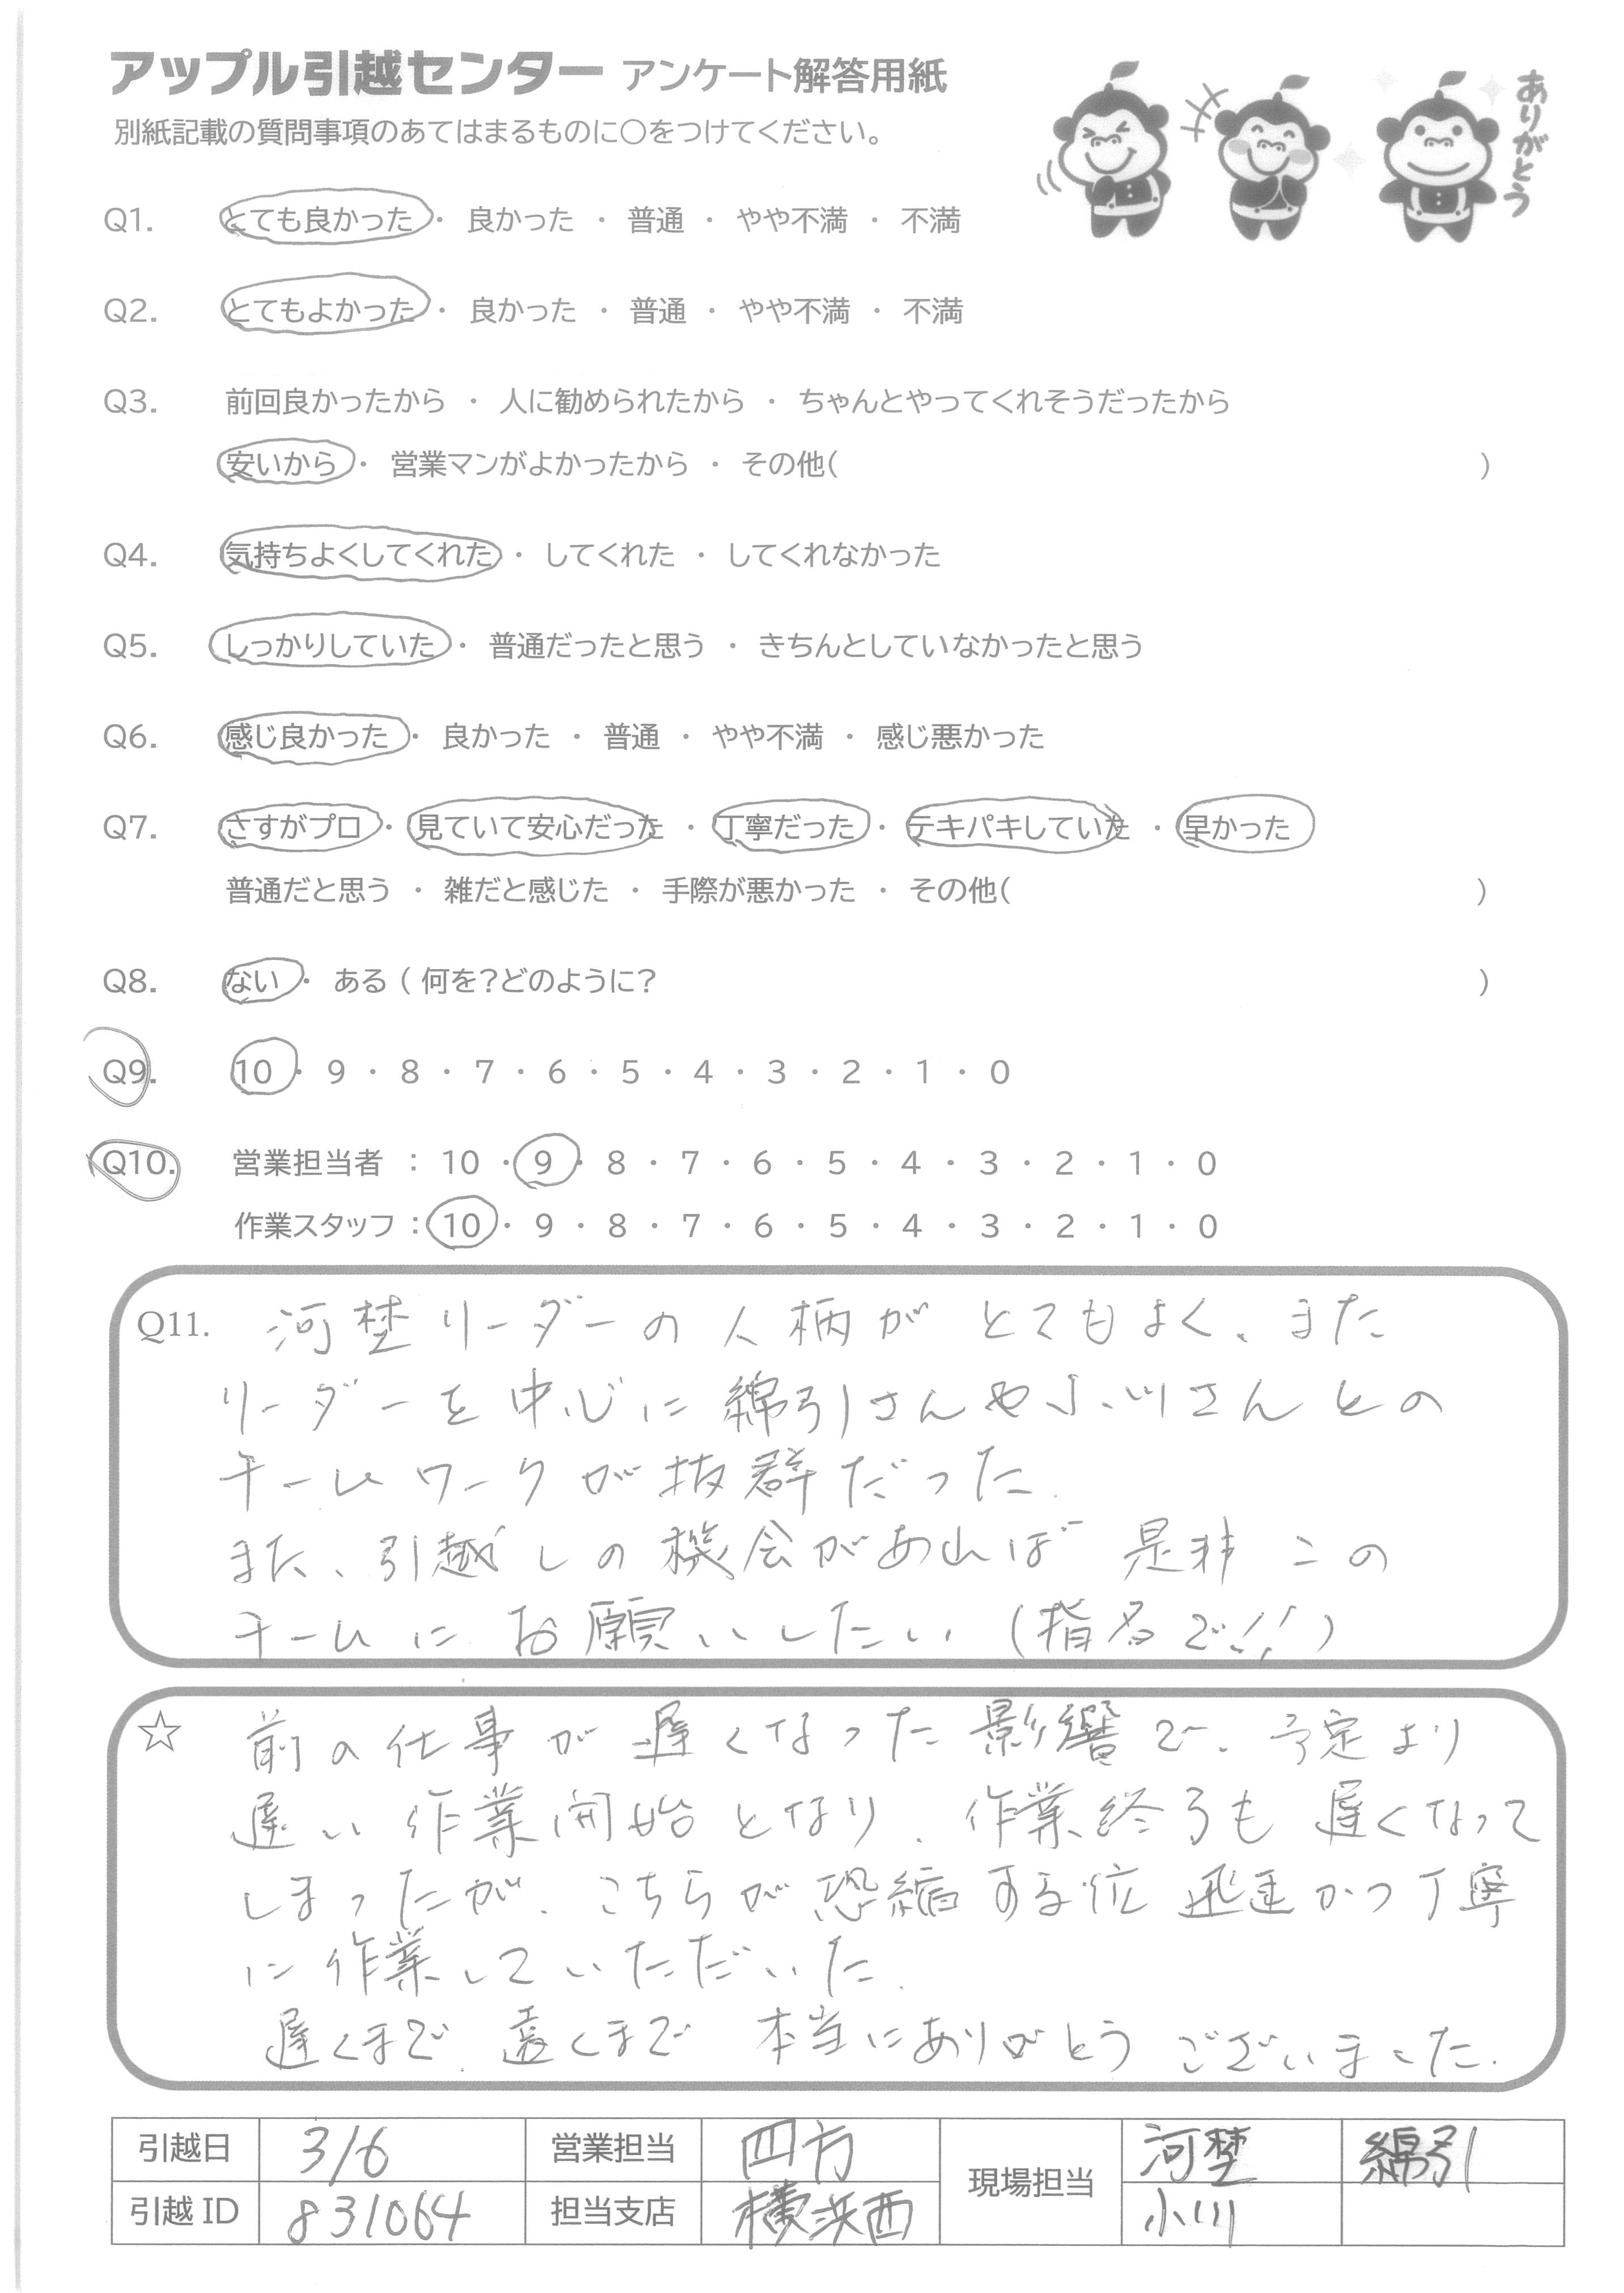 アップル引越センター アンケート解答用紙
ありがとう
別紙記載の質問事項のあてはまるものに○をつけてください。
Q1. とても良かった ・ 良かった ・ 普通 ・ やや不満 ・ 不満
Q2. とてもよかった ・ 良かった ・ 普通 ・ やや不満 ・ 不満
Q3. 前回良かったから ・ 人に勧められたから ・ ちゃんとやってくれそうだったから
安いから ・ 営業マンがよかったから ・ その他( )
Q4. 気持ちよくしてくれた ・ してくれた ・ してくれなかった
Q5. しっかりしていた ・ 普通だったと思う ・ きちんとしていなかったと思う
Q6. 感じ良かった ・ 良かった ・ 普通 ・ やや不満 ・ 感じ悪かった
Q7. さすがプロ ・ 見ていて安心だった ・ 丁寧だった ・ テキパキしていた ・ 早かった
普通だと思う ・ 雑だと感じた ・ 手際が悪かった ・ その他( )
Q8. ない ・ ある ( 何を?どのように? )
Q9. 10 ・ 9 ・ 8 ・ 7 ・ 6 ・ 5 ・ 4 ・ 3 ・ 2 ・ 1 ・ 0
Q10. 営業担当者 : 10 ・ 9 ・ 8 ・ 7 ・ 6 ・ 5 ・ 4 ・ 3 ・ 2 ・ 1 ・ 0
作業スタッフ : 10 ・ 9 ・ 8 ・ 7 ・ 6 ・ 5 ・ 4 ・ 3 ・ 2 ・ 1 ・ 0
Q11. 河埜リーダーの人柄がとてもよく、また
リーダーを中心に綿引さんや小川さんとの
チームワークが抜群だった.
また、引越しの機会があれば是非この
チームにお願いしたい (指名で!!)
☆ 前の仕事が遅くなった影響で、予定より
遅い作業開始となり、作業終了も遅くなって
しまったが、こちらが恐縮する位迅速かつ丁寧
に作業していただいた.
遅くまで、遠くまで 本当にありがとうございました.
引越日 3/6 営業担当 四方 現場担当 河埜 綿引
引越 ID 831064 担当支店 横浜西 小川